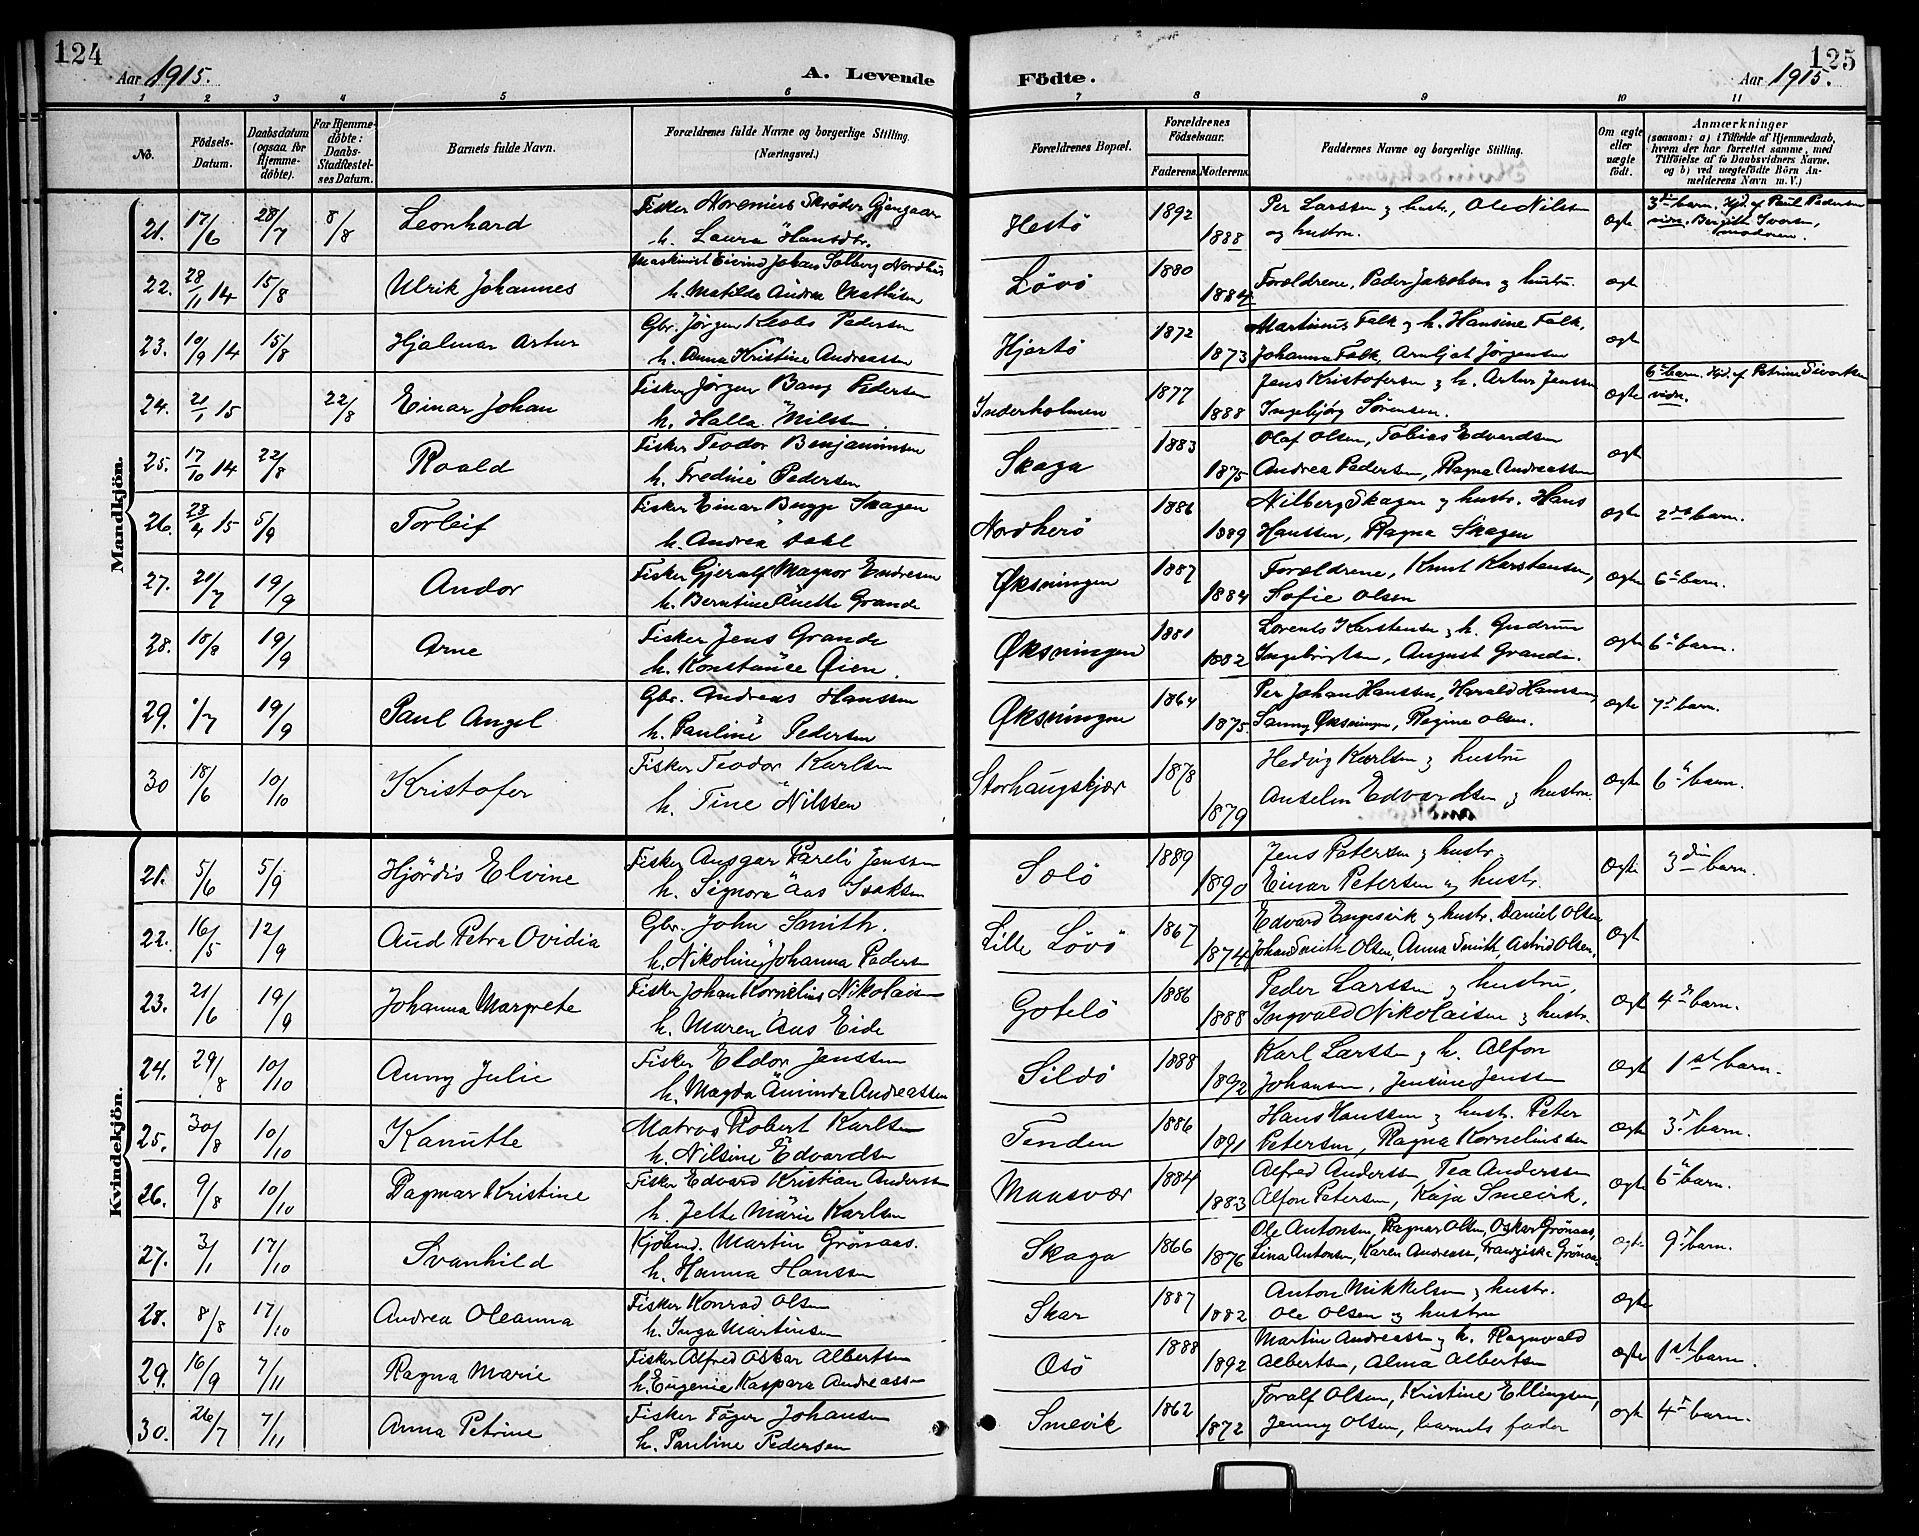 124
Aar 1915.
A. Levende
1 2 3 4 5 6
No.
Födsels-Datum.
Daabsdatum (ogsaa for Hjemme-döbte).
For Hjemme-döbte: Daabs-Stadfæstel-ses Datum.
Barnets fulde Navn.
Forældrenes fulde Navne og borgerlige Stilling.
(Næringsvei.)
Mandkjön.
21. 17/6 28/7 8/8 Leonhard Fisker Norenius Skröder Gjengaar
h. Laura Hansdtr.
22. 28/11 14 15/8 Ulrik Johannes Maskinist Eivind Johan Solberg Nordhus
h. Matilda Andrea Mathisen
23. 10/9 14 15/8 Hjalmar Artur Gbr. Jørgen Pedersen
h. Anna Kristine Andreassen
24. 21/1 15 22/8 Einar Johan Fisker Jørgen Bang Pedersen
h. Halla Nilssen.
25. 17/10 14 22/8 Roald Fisker Teodor Benjaminsen
h. Fredine Pedersen
26. 28/4 15 5/9 Torleif Fisker Einar Bugge Skagen
h. Andrea Dahl
27. 21/7 19/9 Andor Fisker Gjeralf Magnor Endresen
h. Berntine Anette Grande
28. 18/8 19/9 Arne Fisker Jens Grande
h. Konstance Øien.
29. 1/7 19/9 Paul Angel Gbr. Andreas Hanssen
h. Pauline Pedersen
30 18/6 10/10 Kristofer Fisker Teodor Karlsen
h. Tine Nilssen
Kvindekjön.
21. 5/6 5/9 Hjördis Elvine Fisker Ansgar Pareli Jenssen
h. Signora Aas Isaksen
22. 16/5 12/9 Aud Petra Ovidia Gbr. John Smith.
h. Nikoline Johanna Peders
23. 21/6 19/9 Johanna Margrete Fisker Johan Kornelius Nikolaisen
h. Maren Aas Eide
24. 29/8 10/10 Anny Julie Fisker Eldor Jenssen
h. Magda Aminda Andreassen
25. 30/8 10/10 Kanutte Matros Robert Karlsen
h. Nilsine Edvardsen
26. 9/8 10/10 Dagmar Kristine Fisker Edvard Kristian Anderssen
h. Jette Marie Karlsen
27. 3/1 17/10 Svanhild Kjöbmd. Martin Grönaas.
h. Hanna Hanssen
28. 8/8 17/10 Andrea Oleanna Fisker Konrad Olsen
h. Inga Martinsen
29. 16/9 7/11 Ragna Marie Fisker Alfred Oskar Albertsen
h. Eugenie Kaspara Andreassen
30. 26/7 7/11 Anna Petrine Fisker Töger Johansen
h. Pauline Pedersen
125
Födte.
Aar 1915.
7 8 9 10 11
Forældrenes Bopæl.
Forældrenes Födselsaar.
Faderens. Moderens.
Faddernes Navne og borgerlige Stilling.
Om ægte eller uægte födt.
Anmærkninger
(saasom: a) i Tilfælde af Hjemmedaab, hvem der har forrettet samme, med Tilföielse af to Daabsvidners Navne, og b) ved uægtefödte Börn Anmelderens Navn m. V.)
Hestö 1892 1888 Per Larssen og hustr, Ole Nilsen
og hustru. ægte 3die barn. Hjd. af Paul Pedersen
vidn. Birgith Iversen,
moderen.
Lövö 1880 1884 Forældrene, Peder Jakobsen og hustru. ægte
Hjertö 1872 1873 Martinus Falk og h. Hansine Falk,
Johanna Falk, Arnljot Jörgensen ægt
Inderholmen 1877 1888 Jens Kristofersen og h. Artur Jenssen
Ingebjörg Sörensen. ægte 6te barn. Hjd. af Petrine Sivertsen
vidn.
Skaga 1883 1875 Olaf Olsen, Tobias Edvardsen
Andrea Pedersen, Ragna Andreassen ægt
Nordherö 1886 1889 Nilberg Skagen og hustr. Hans
Hanssen, Ragna Skagen ægte 2det barn.
Øksningen 1887 1884 Forældrene, Knut Karstensen,
Sofie Olsen ægte 6te barn.
Øksningen 1881 1882 Lorents Karstensen og h. Gudrun
Ingebrigtsen, August Grande. ægte 6te barn.
Øksningen 1864 1875. Per Johan Hanssen, Harald Hanssen,
Sanny Øksningen, Ragine Olsen. ægte 7de barn.
Storhaugskjær 1878 1879 Hedvig Karlsen og hustru
Anselm Edvardsen og hustru. ægte 6te barn.
Solö 1889 1890 Jens Petersen og hustr.
Einar Petersen og hustr. ægte 3die barn.
Lille Lövö 1867 1874 Edvard Engesvik og hustr. Daniel Olsen
Johan Smith Olsen, Anna Smith, Astrid Olsen. ægte
Gotelö 1886 1888 Peder Larssen og hustru,
Ingvald Nikolaisen og hustr. ægte 4de barn.
Sildö 1888 1892 Karl Larssen og h. Alfon
Johansen, Jensine Jenssen ægte 1ste barn.
Tenden 1886 1891 Hans Hanssen og hustr. Peter
Petersen, Ragna Korneliussen ægte 3. barn.
Maasvær 1884 1883 Alfred Anderssen, Tea Anderssen
Alfon Petersen, Kaja Smevik. ægte 6te barn.
Skaga 1866 1876 Ole Antonsen, Ragnar Olsen, Oskar Grönaas,
Lina Antonsen, Karen Andreassen, Franziska Grönaas ægte 9de barn.
Skar 1887 1882 Anton Mikkelsen og hustr.
Ole Olsen og hustru ægte
Osö 1888 1892 Martin Andreassen og h. Ragnvald
Albertsen, Alma Albertsen ægte 1ste barn.
Smevik 1862 1872 Toralf Olsen, Kristine Ellingsen,
Jenny Olsen, barnets fader ægte 4de barn.